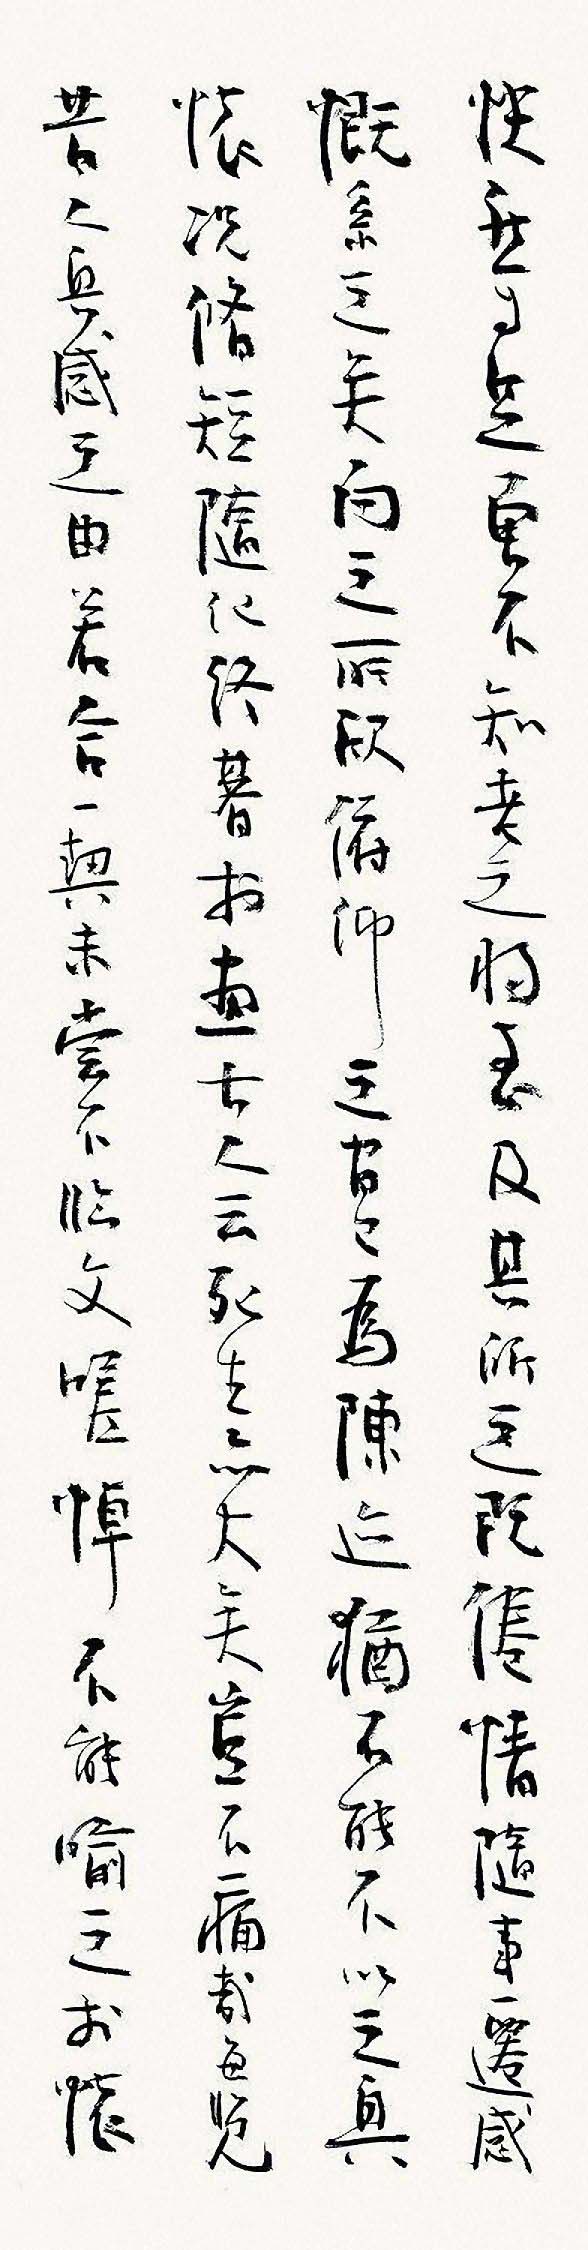 快然自足曾不知老之將至及其所之既倦情隨事遷感
慨系之矣向之所欣俯仰之間已為陳迹猶不能不以之興
懷況脩短隨化終朞於盡古人云死生亦大矣豈不痛哉每覽
昔人興感之由若合一契未嘗不臨文嗟悼不能喻之於懷